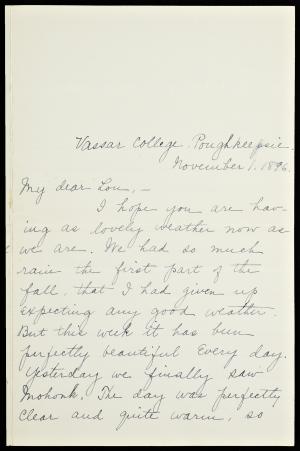 Vassar College. Poughkeepsie.
November 1. 1896.
My dear Lou, -
I hope you are hav-
ing as lovely weather now as
we are. We had so much
rain the first part of the
fall, that I had given up
expecting any good weather.
But this week it has been
perfectly beautiful every day.
Yesterday we finally saw
Mohonk. The day was perfectly
clear and quite warm, so